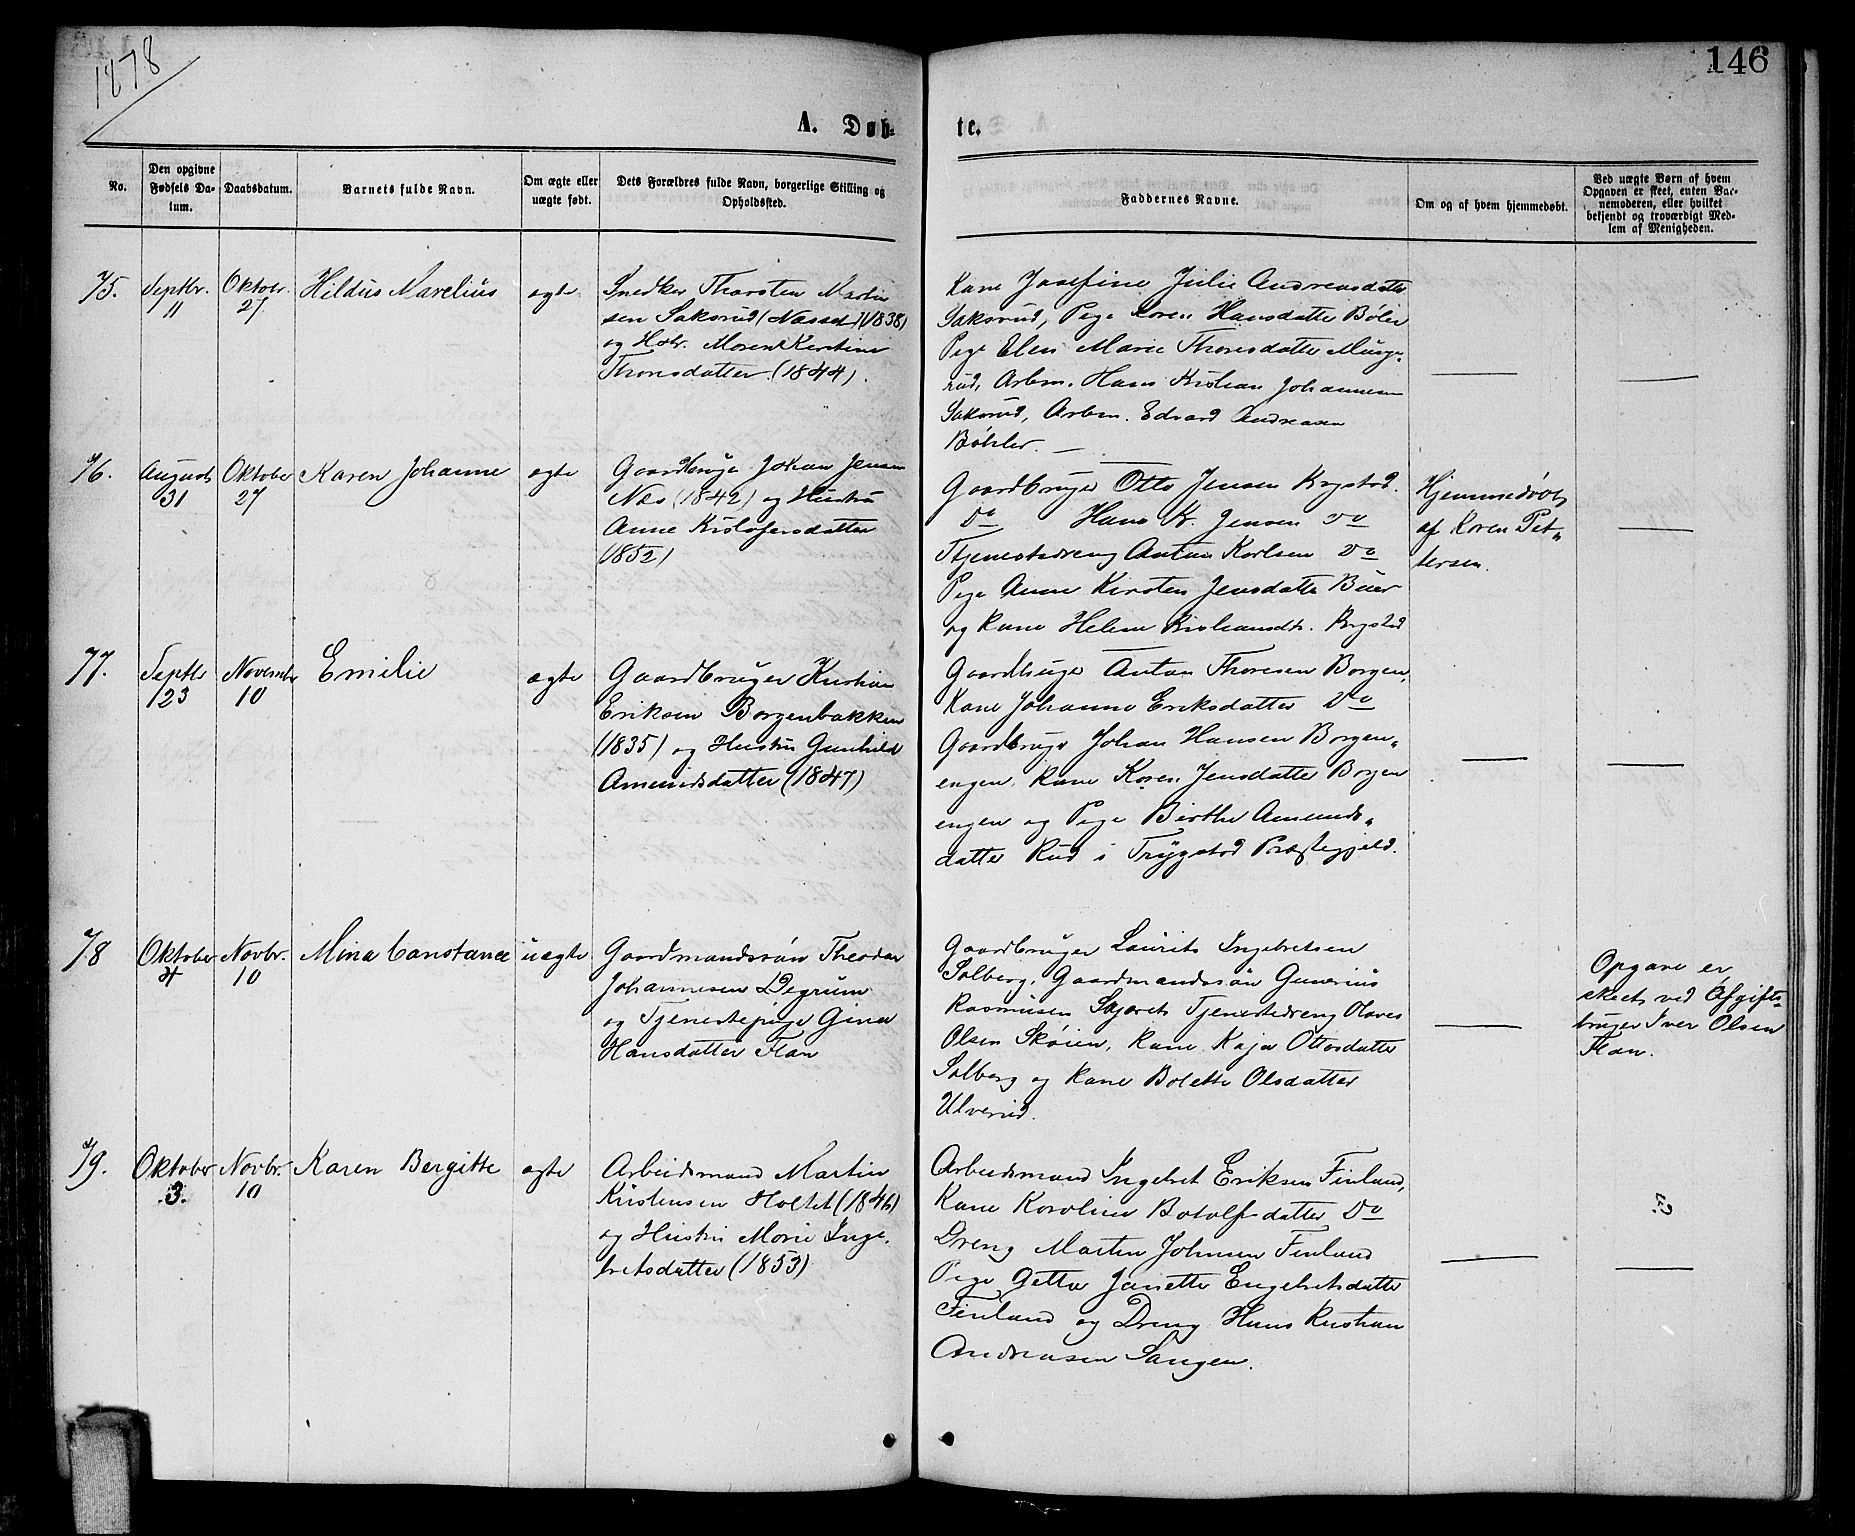 1878
146
A. Døb-
te.
No.
Den opgivne Fødsels Da-tum.
Daabsdatum.
Barnets fulde Navn.
Om ægte eller uægte født.
Dets Forældres fulde Navn, borgerlige Stilling og Opholdssted.
Faddernes Navne.
Om og af hvem hjemmedøbt.
Ved uægte Børn af hvem Opgaven er skeet, enten Bar-nemoderen, eller hvilket bekjendt og troværdigt Med-lem af Menigheden.
75.
Septbr. 11
Oktobr. 27
Hildus Marelius
ægte
Snedker Thorsten Martin
sen Saksrud (Næsset) (1838)
og Hstr. Maren Kirstine
Thoresdatter (1844).
Kone Josefine Julie Andreasdatter
Saksrud, Pige Karen Hansdatter Bøler
Pige Elen Marie Thoresdatter
rud, Arbm. Hans Kristian Johannesen
Saksrud, Arbm. Edvard Andreasen
Bøhler. —
76.
August 31
Oktober 27
Karen Johanne
ægte
Gaardbruger Johan Jensen
Næs (1842) og Hustru
Anne Kristofersdatter
(1852)
Gaardbruger Otto Jensen Krystad.
Do Hans Kr. Jensen Do
Tjenestedreng Anton Karlsen Do
Pige Anne Kirsten Jensdatter Buer
og Kone Helene Kristiansdtr. Krystad
Hjemmedøbt
af Karen Pet-
tersen.
77.
Septbr 23
Novembr 10
Emilie
ægte
Gaardbruger Kristian
Eriksen Borgenbakken
(1835) og Hustru Gunhild
Amundsdatter (1847)
Gaardbruger Anton Thoresen Borgen,
Kone Johanne Eriksdatter Do
Gaardbruger Johan Hansen Borgen-
engen, Kone Karen Jensdatter Borgen
engen og Pige Birthe Amunds-
datter Rud i Trygstad Præstegjeld.
78
Oktober 4
Novbr. 10
Mina Constance
uægte
Gaardmandssøn Theodor
Johannesen Degrum
og Tjenestepige Gina
Hansdatter Flan
Gaardbruger Laurits Ingebretsen
Solberg, Gaardmandssøn Gunerius
Rasmusen Skjøret Tjenestedreng Olaves
Olsen Skøien, Kone Kaja Ottosdatter
Solberg og Kone Bolette Olsdatter
Ulverud.
Opgave er
skeet ved Afgifts-
bruger Iver Olsen
Flan.
79.
Oktober 3.
Novbr. 10
Karen Bergitte
ægte
Arbeidsmand Martin
Kristensen Holtet (1846)
og Hustru Marie Inge-
bretsdatter (1853)
Arbeidsmand Ingebret Eriksen Finland,
Kone Karoline Botolfsdatter Do
Dreng Martin Johnsen Finland
Pige Gette Janette Engebretsdatter
Finland og Dreng Hans Kristian
Andreasen Sangen.